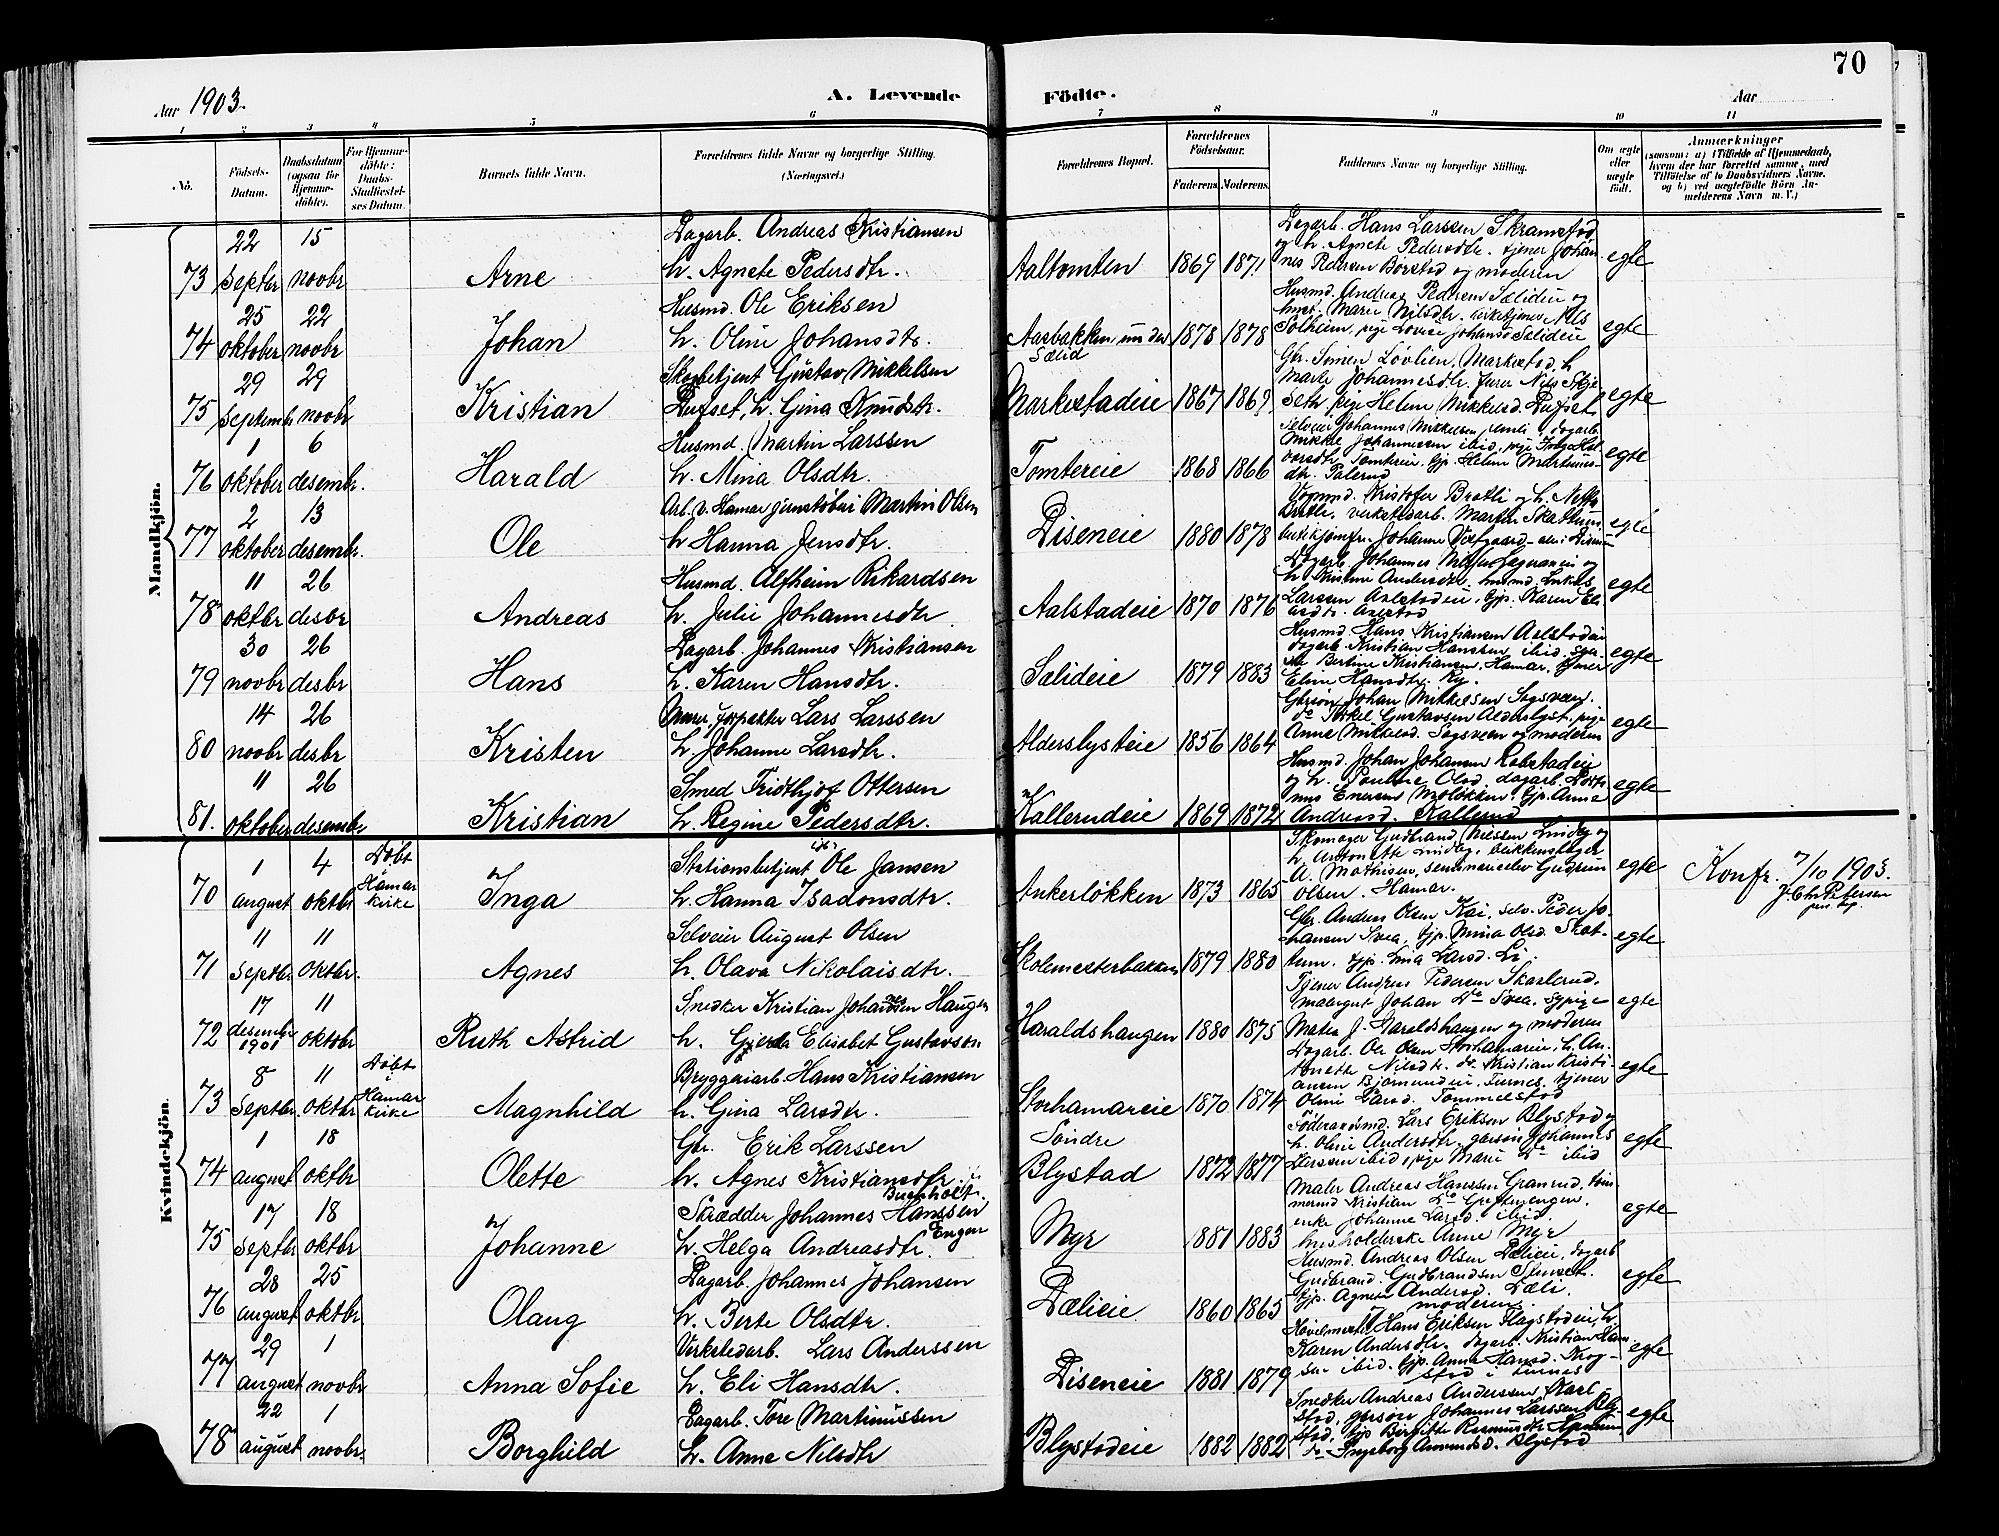 70
Aar 1903.
A. Levende Födte.
Aar
1 2 3 4 5 6 7 8 9 10 11
No.
Födsels-Datum.
Daabsdatum (ogsaa for Hjemmedöbte).
For Hjemmedöbte: Daabs-Stadfæstelses Datum.
Barnets fulde Navn.
Forældrenes fulde Navne og borgerlige Stilling. (Næringsvei.)
Forældrenes Bopæl.
Forældrenes Födselsaar.
Faderens. Moderens.
Faddernes Navne og borgerlige Stilling.
Om ægte eller uægte födt.
Anmærkninger (saasom: a) i Tilfælde af Hjemmedaab, hvem der har forrettet samme, med Tilföielse af to Daabsvidners Navne, og b) ved uægtefödte Börn Anmelderens Navn m. V.)
Mandkjön.
73 22 septbr 15 novbr Arne
Dagarb. Andreas Kristiansen
h. Agnete Pedersdtr.
Aaltomten 1869 1871
Dagarb. Hans Larssen Skramstad
og h. Agnete Pedersdtr. tjener Johan-
nes Pedersen Börstad og moderen
egte
74 25 oktober 22 novbr Johan
Husmd. Ole Eriksen
h. Oline Johansdtr.
Aasbakken under Sælid 1878 1878
Husmd. Andreas Pedersen Sælideie og
hust. Marie Nilsdtr. Nils
Solheim, pige Lovise Johansd Sælideie
egte
75 29 septembr 29 novbr Kristian
Skogbetjent Gustav Mikkelsen
Dufset, h. Gina Knudsdtr.
Markestadeie 1867 1869
Gbr. Simen Lövlien, Markestad, h
Marte Johannesdtr. Nils Skje-
seth, pige Helene Mikkelsd. Dufset
egte
76 1 oktober 6 desembr. Harald
Husmd. Martin Larssen
h. Mina Olsdtr.
Tomtereie 1868 1866
Selveier Johannes Mikkelsen dagarb.
Mikkel Johannessen ibid, pige Inga Hal-
vorsdtr. Tomtereie, tjp. Helene Martinus-
dtr. Palerud
egte
77 2 oktober 13 desembr. Ole
Arb. v. Hamar jernstöberi Martin Olsen
h Hanna Jensdtr.
Diseneie 1880 1878
Vognmd. Kristofer Bratli og h. Netta
Bratli, verkstedsarb. Martin Skattum,
butikjomfr. Johanne Vestgaard
egte
78 11 oktbr 26 desbr Andreas
Husmd. Alfheim Rikardsen
h. Julie Johannesdtr
Aalstadeie 1870 1876
Dagarb. Johannes og
h. Kristine Andersdtr. husmd. Lukas
Larssen Aalstadeie, tjp. Karen Eli-
asdtr. Aalstad
egte
79 30 novbr 26 desbr Hans
Dagarb. Johannes Kristiansen
h. Karen Hansdtr.
Sælideie 1879 1883
Husmd Hans Kristiansen Aalstadeie
dagarb. Kristian Hanssen ibid,
Bertine Kristiansen, Hamar, tjener
Eline Hansdtr. Ry.
egte
80 14 novbr 26 desbr Kristen
Murer, forpakter Lars Larssen
h. Johanne Larsdtr.
Alderslysteie 1856 1864
Gbrsön Johan Mikkelsen Sagsveen.
do Torkel Gustavsen Alderslyst, pige
Anne Mikkelsd. Sagsveen og moderen
egte
81. 11 oktober 26 desembr Kristian
Smed Fridthjof Ottersen
h. Regine Pedersdtr.
Kallerudeie 1869 1872
Husmd. Johan Johansen Robstadeie
og h. Pauline Olsd, dagarb.
Enersen Moløkken, tjp. Anne
Andreasd. Kallerud
egte
Kvindekjön.
70 1 august 4 oktbr Döbt i Hamar kirke Inga
Stationsbetjent Ole Jansen
h. Hanna Isadonsdtr.
Ankerløkken 1873 1865
Skomager Gudbrand Nielssen Lindeg og
h. Antonette Lindeg, blikkenslager
A. Mathisen, seminarieelev Gudrun
Olsen. Hamar.
egte
Konfr. 7/10 1903.
J. Chr. Petersen
71 11 septbr. 11 oktbr. Agnes
Selveier August Olsen
h. Olava Nikolaisdtr.
Skolemesterbakken 1879 1880
Gbr. Anders Olsen Kai, selv. Peder Jo-
hansen Svea, tjp. Mina Olsd. Skat-
tum. tjp. Lina Larsd. Li.
egte
72 17 desembr 1901 11 oktobr Ruth Astrid
Snedker Kristian Johansen Haugen
h. Gjerda Elisabet Gustavson
Haraldshaugen 1880 1875
Tjener Andreas Pedersen Skarlerud,
malergut Johan do Svea, sypige
Matea J. Haraldshaugen og moderen
egte
73 8 septbr. 11 oktbr Döbt i Hamar kirke Magnhild
Bryggeriarb. Hans Kristiansen
h. Gina Larsdtr.
Storhamareie 1870 1874
Dagarb. Ole Olsen Storhamareie, h. An-
tonette Nilsdtr. do Kristian Kristi-
ansen Bjørnundeie, Furnes, tjener
Oline Larsd. Tommelstad
egte
74 1 august 18 oktbr Olette
Gbr. Erik Larssen
h. Agnes Kristiansdtr.
Søndre
Blystad 1872 1877
Föderaadsmd. Lars Eriksen Blystad og
h. Oline Andersdtr, gbrsön Johannes
Larssen ibid, pige Marie do ibid
egte
75 17 septbr 18 oktbr Johanne
Skrædder Johannes Hanssen Buchholt.
h. Helga Andreasdtr. Engen
Myr 1881 1883
Maler Andreas Hanssen Granrud, töm-
mermd Kristian do Grefterengen,
enke Johanne Larsd. ibid.
husholderske Anne Myr
egte
76 28 august 25 oktbr Olaug
Dagarb. Johannes Johansen
h. Berte Olsdtr.
Dælieie 1860 1865
Husmd. Andreas Olsen Dælieie, dagarb
Gudbrand Gudbrandsen Stenset.
tjp. Agnete Andersd. Dæli.
moderen.
egte
77 29 august 1 novbr Anna Sofie
Verkstedarb. Lars Anderssen
h. Eli Hansdtr.
Diseneie 1881 1879
Hövelmester Hans Eriksen Flagstadeie, h.
Karen Andersdtr. dagarb. Kristian Han-
sen ibid. tjp. Anna Hansd. Krog-
stad i Furnes
egte
78 22 august 1 novbr. Borghild
Dagarb. Tore Martinussen
h. Anne Nilsdtr
Blystadeie 1882 1882
Snedker Andreas Anderssen Karl-
stad, gbrsön Johannes Larssen Bly-
stad, tjp Birgitte Rasmusdtr
do Ingeborg Amundsd. Blystad
egte